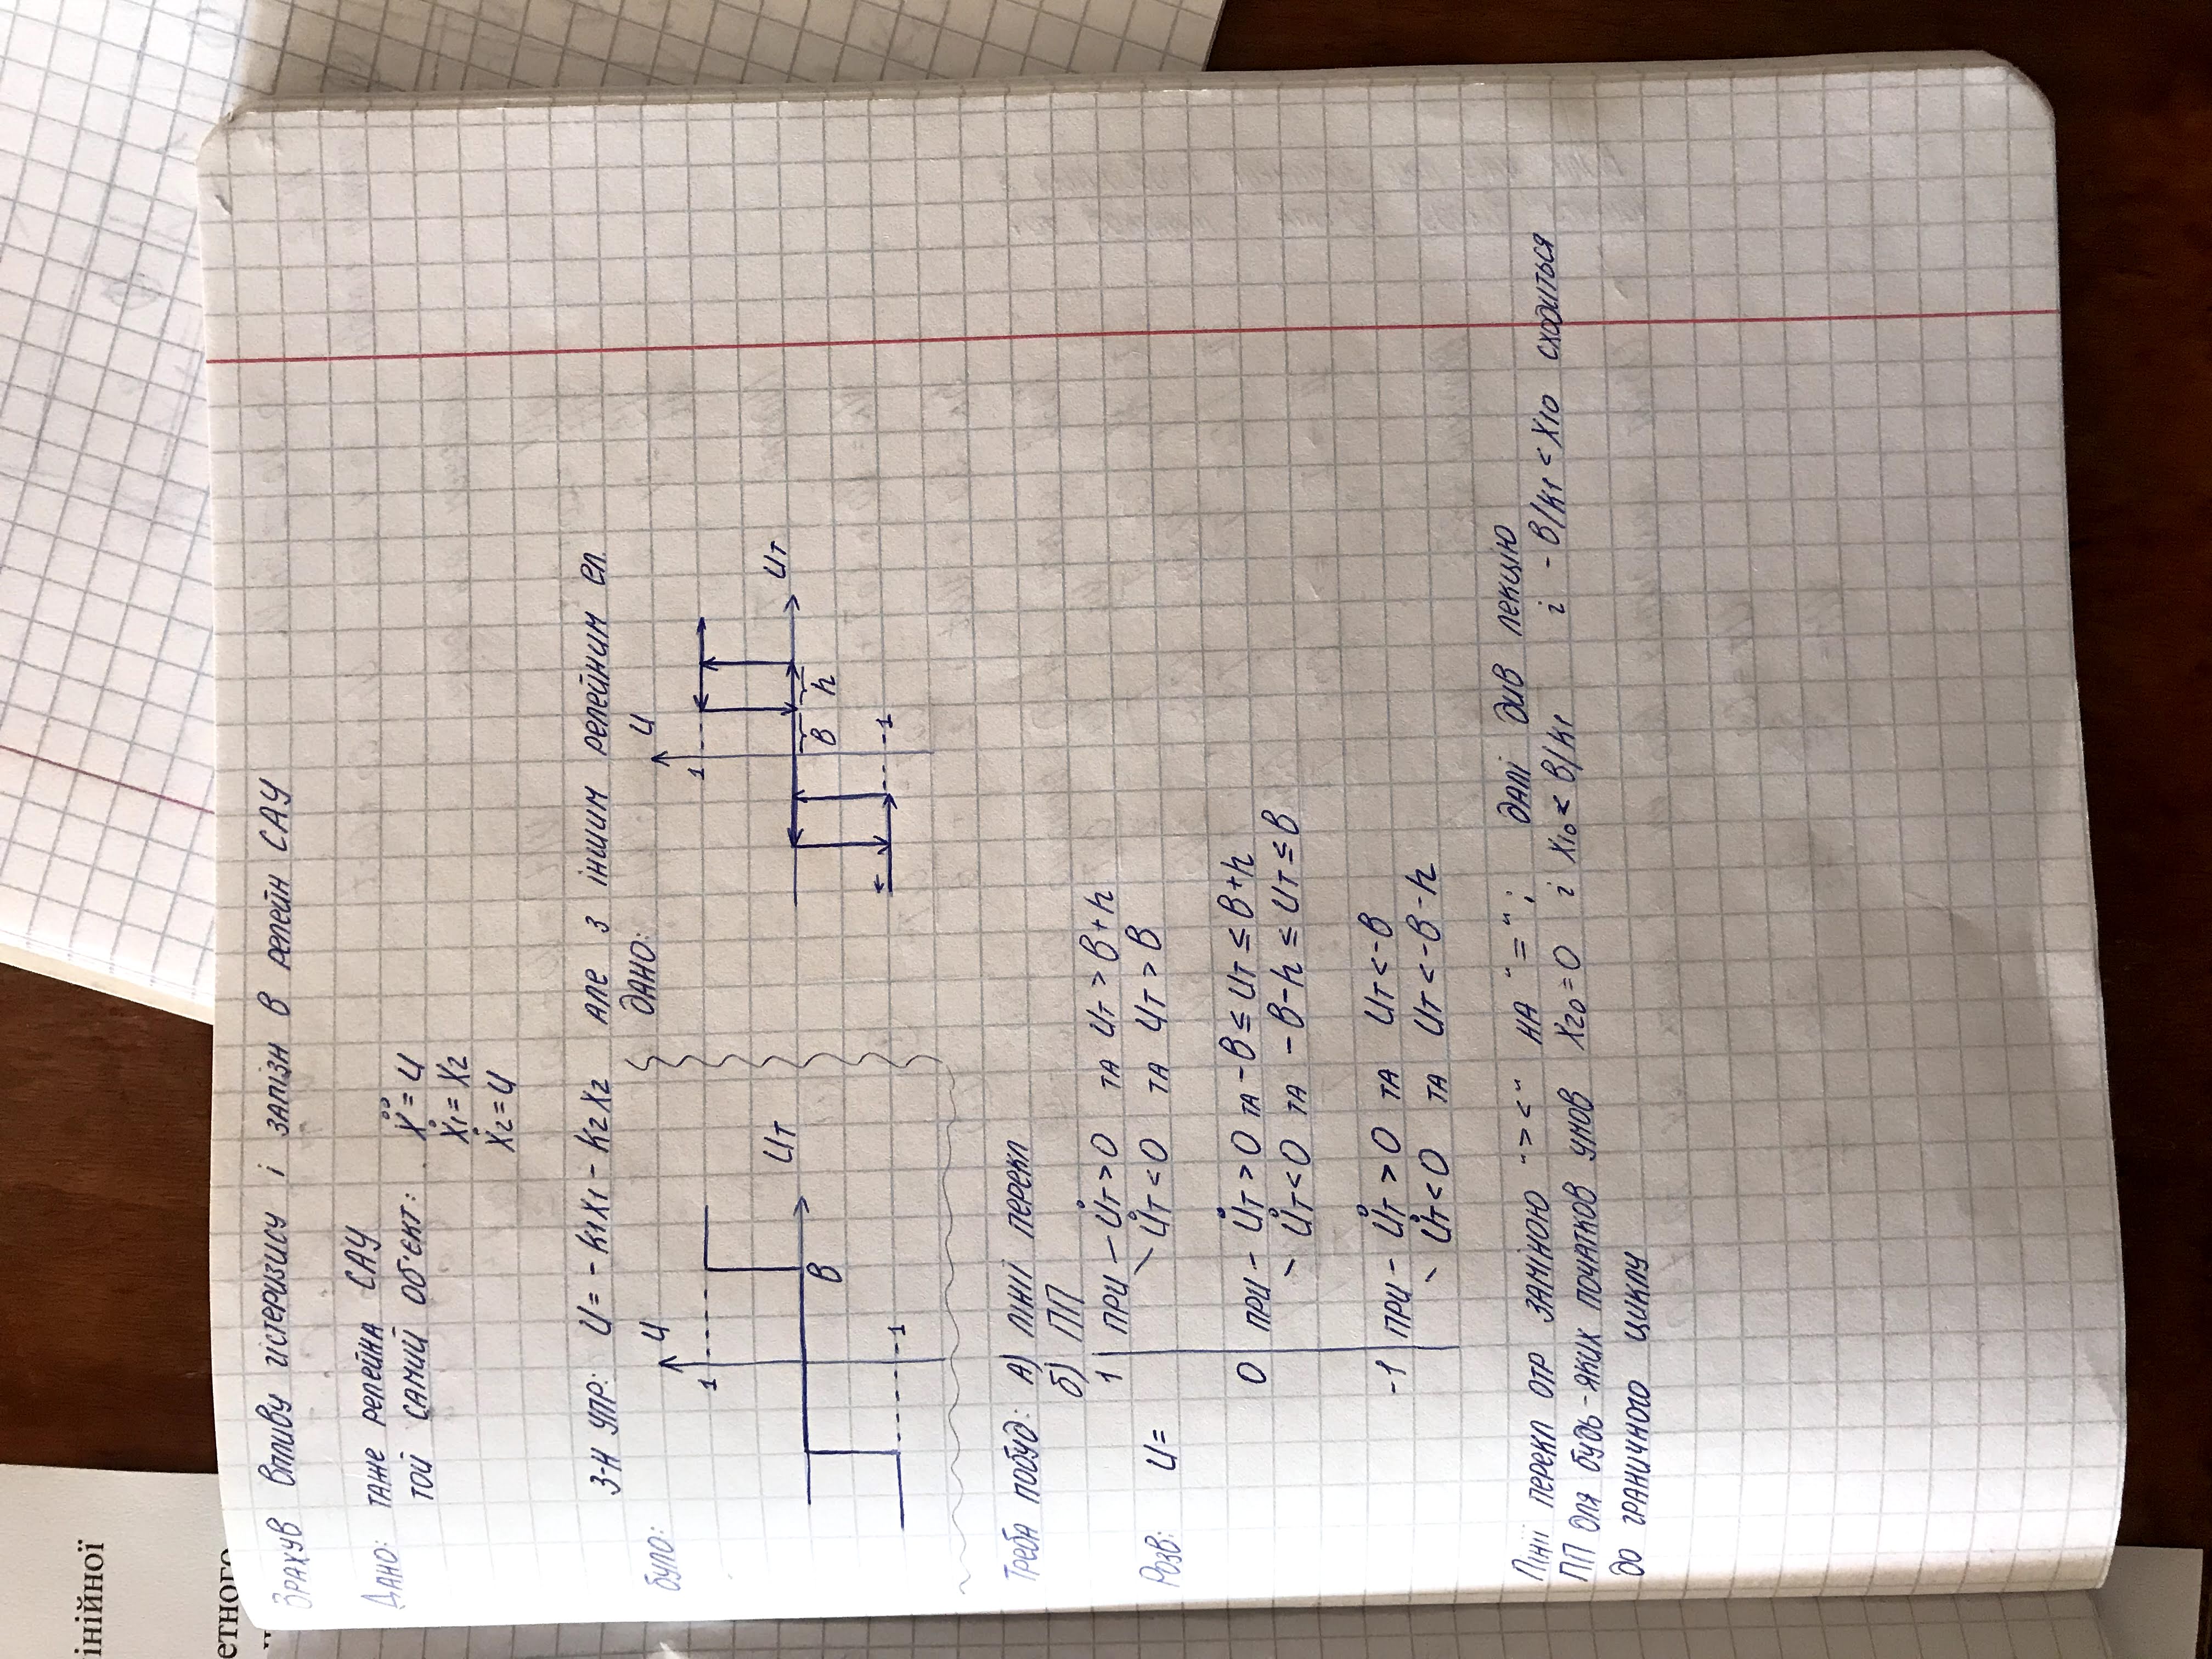 інійної
етного
Врахув впливу гістеризису і запізн в релейн САУ
Дано: таже релейна САУ
той самий об'єкт: Ẍ = U
Ẋ1 = X2
Ẋ2 = U
З-н упр: U = - K1X1 - K2X2 але з іншим релейним ел.
було:
U
1
Uт
B
-1
Дано:
U
1
Uт
B
h
-1
Треба побуд: А) лінії перекл
б) ПП
1 при - U̇т > 0 та Uт > B+h
- U̇т < 0 та Uт > B
Розв: U =
0 при - U̇т > 0 та -B ≤ Uт ≤ B+h
- U̇т < 0 та -B-h ≤ Uт ≤ B
-1 при - U̇т > 0 та Uт < -B
- U̇т < 0 та Uт < -B-h
Лінії перекл отр заміною "> <" на "="; далі див лекцію
ПП для будь-яких початков умов X20 = 0 і X10 < B/K1 і -B/K1 < X10 сходиться
до граничного циклу